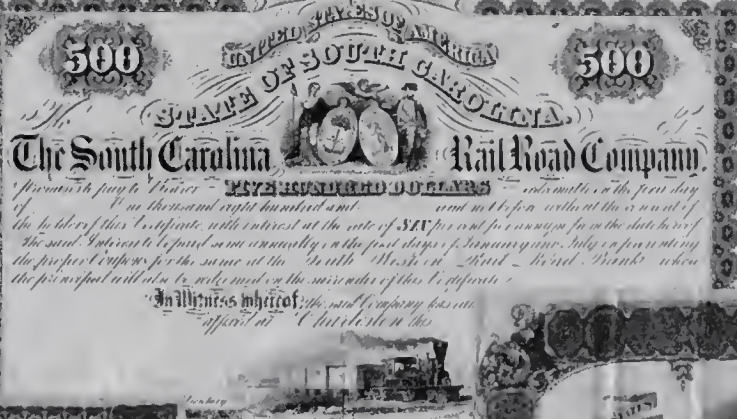 500 UNITED STATES OF AMERICA 500
STATE OF SOUTH CAROLINA.
The South Carolina Rail Road Company.
Promise to pay to Bearer FIVE HUNDRED DOLLARS redeemable on the first day
of One thousand eight hundred and and not before without the consent of
the holder of this Certificate, with interest at the rate of SIX per cent per annum from the date hereof
The said Interest to be paid semi annually on the first days of January and July on presenting
the proper Coupons for the same at the South Western Rail Road Bank where
the principal will also be redeemed on the surrender of this Certificate
In Witness whereof, the said Company has
affixed at Charleston this